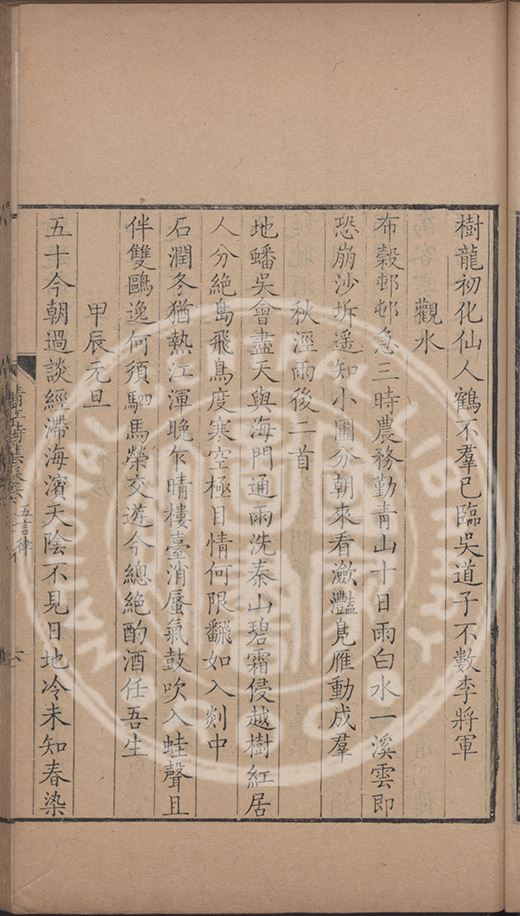 樹龍初化仙人鶴不羣已臨吳道子不數李將軍
觀水
布穀邨邨急三時農務勤青山十日雨白水一溪雲即
恐崩沙坼遥知小圃分朝來看瀲灩鳧雁動成羣
秋溼雨後二首
地蟠吳會盡天與海門通雨洗秦山碧霜侵越樹紅居
人分絶島飛鳥度寒空極目情何限翻如入剡中
石潤冬猶熱江渾晚乍晴樓臺消蜃氣鼓吹入蛙聲且
伴雙鷗逸何須駟馬榮交遊今總絶酌酒任吾生
甲辰元旦
五十今朝過談經滯海濱天陰不見日地冷未知春染
五言律